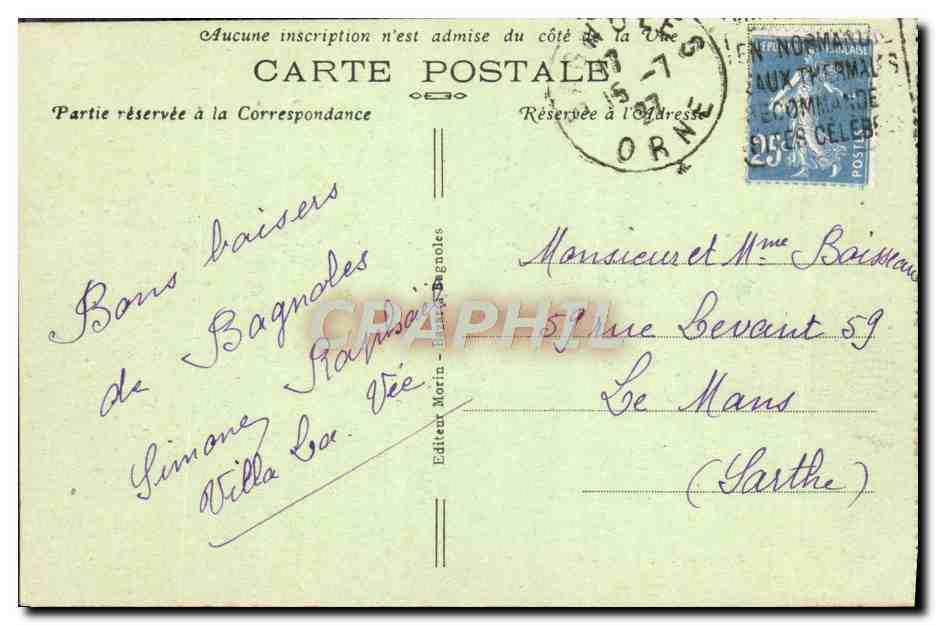 Aucune inscription n'est admise du côté de la Vue
CARTE POSTALE
Partie réservée à la Correspondance
Réservée à l'Adresse
ORNE
EN NORMAN
EAUX THERMALES
RECOMMANDE
SITES CÉLÈB
25
POSTES
Bons baisers
de Bagnoles
Simone
Villa La Vée
Editeur Morin - Bagnoles
CPAPHIL
Monsieur et Mme Boisseau
59 rue Levant 59
Le Mans
(Sarthe)